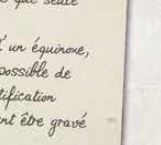 que seule
d'un équinoxe,
possible de
tification
nt être gravé